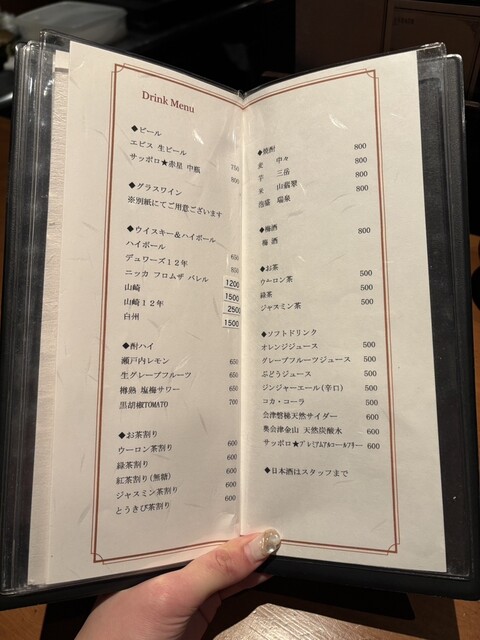 Drink Menu
◆ビール
エビス 生ビール 750
サッポロ★赤星 中瓶 800
◆グラスワイン
※別紙にてご用意ございます
◆ウイスキー＆ハイボール
ハイボール 650
デュワーズ１２年 800
ニッカ フロムザ バレル 1200
山崎 1500
山崎１２年 2500
白州 1500
◆酎ハイ
瀬戸内レモン 650
生グレープフルーツ 650
樽熟 塩梅サワー 650
黒胡椒TOMATO 700
◆お茶割り
ウーロン茶割り 600
緑茶割り 600
紅茶割り(無糖) 600
ジャスミン茶割り 600
とうきび茶割り 600
◆焼酎
麦 中々 800
芋 三岳 800
米 山翡翠 800
泡盛 瑞泉 800
◆梅酒
梅酒 800
◆お茶
ウーロン茶 500
緑茶 500
ジャスミン茶 500
◆ソフトドリンク
オレンジジュース 500
グレープフルーツジュース 500
ぶどうジュース 500
ジンジャーエール(辛口) 500
コカ・コーラ 500
会津磐梯天然サイダー 600
奥会津金山 天然炭酸水 600
サッポロ★プレミアムアルコールフリー 600
◆日本酒はスタッフまで